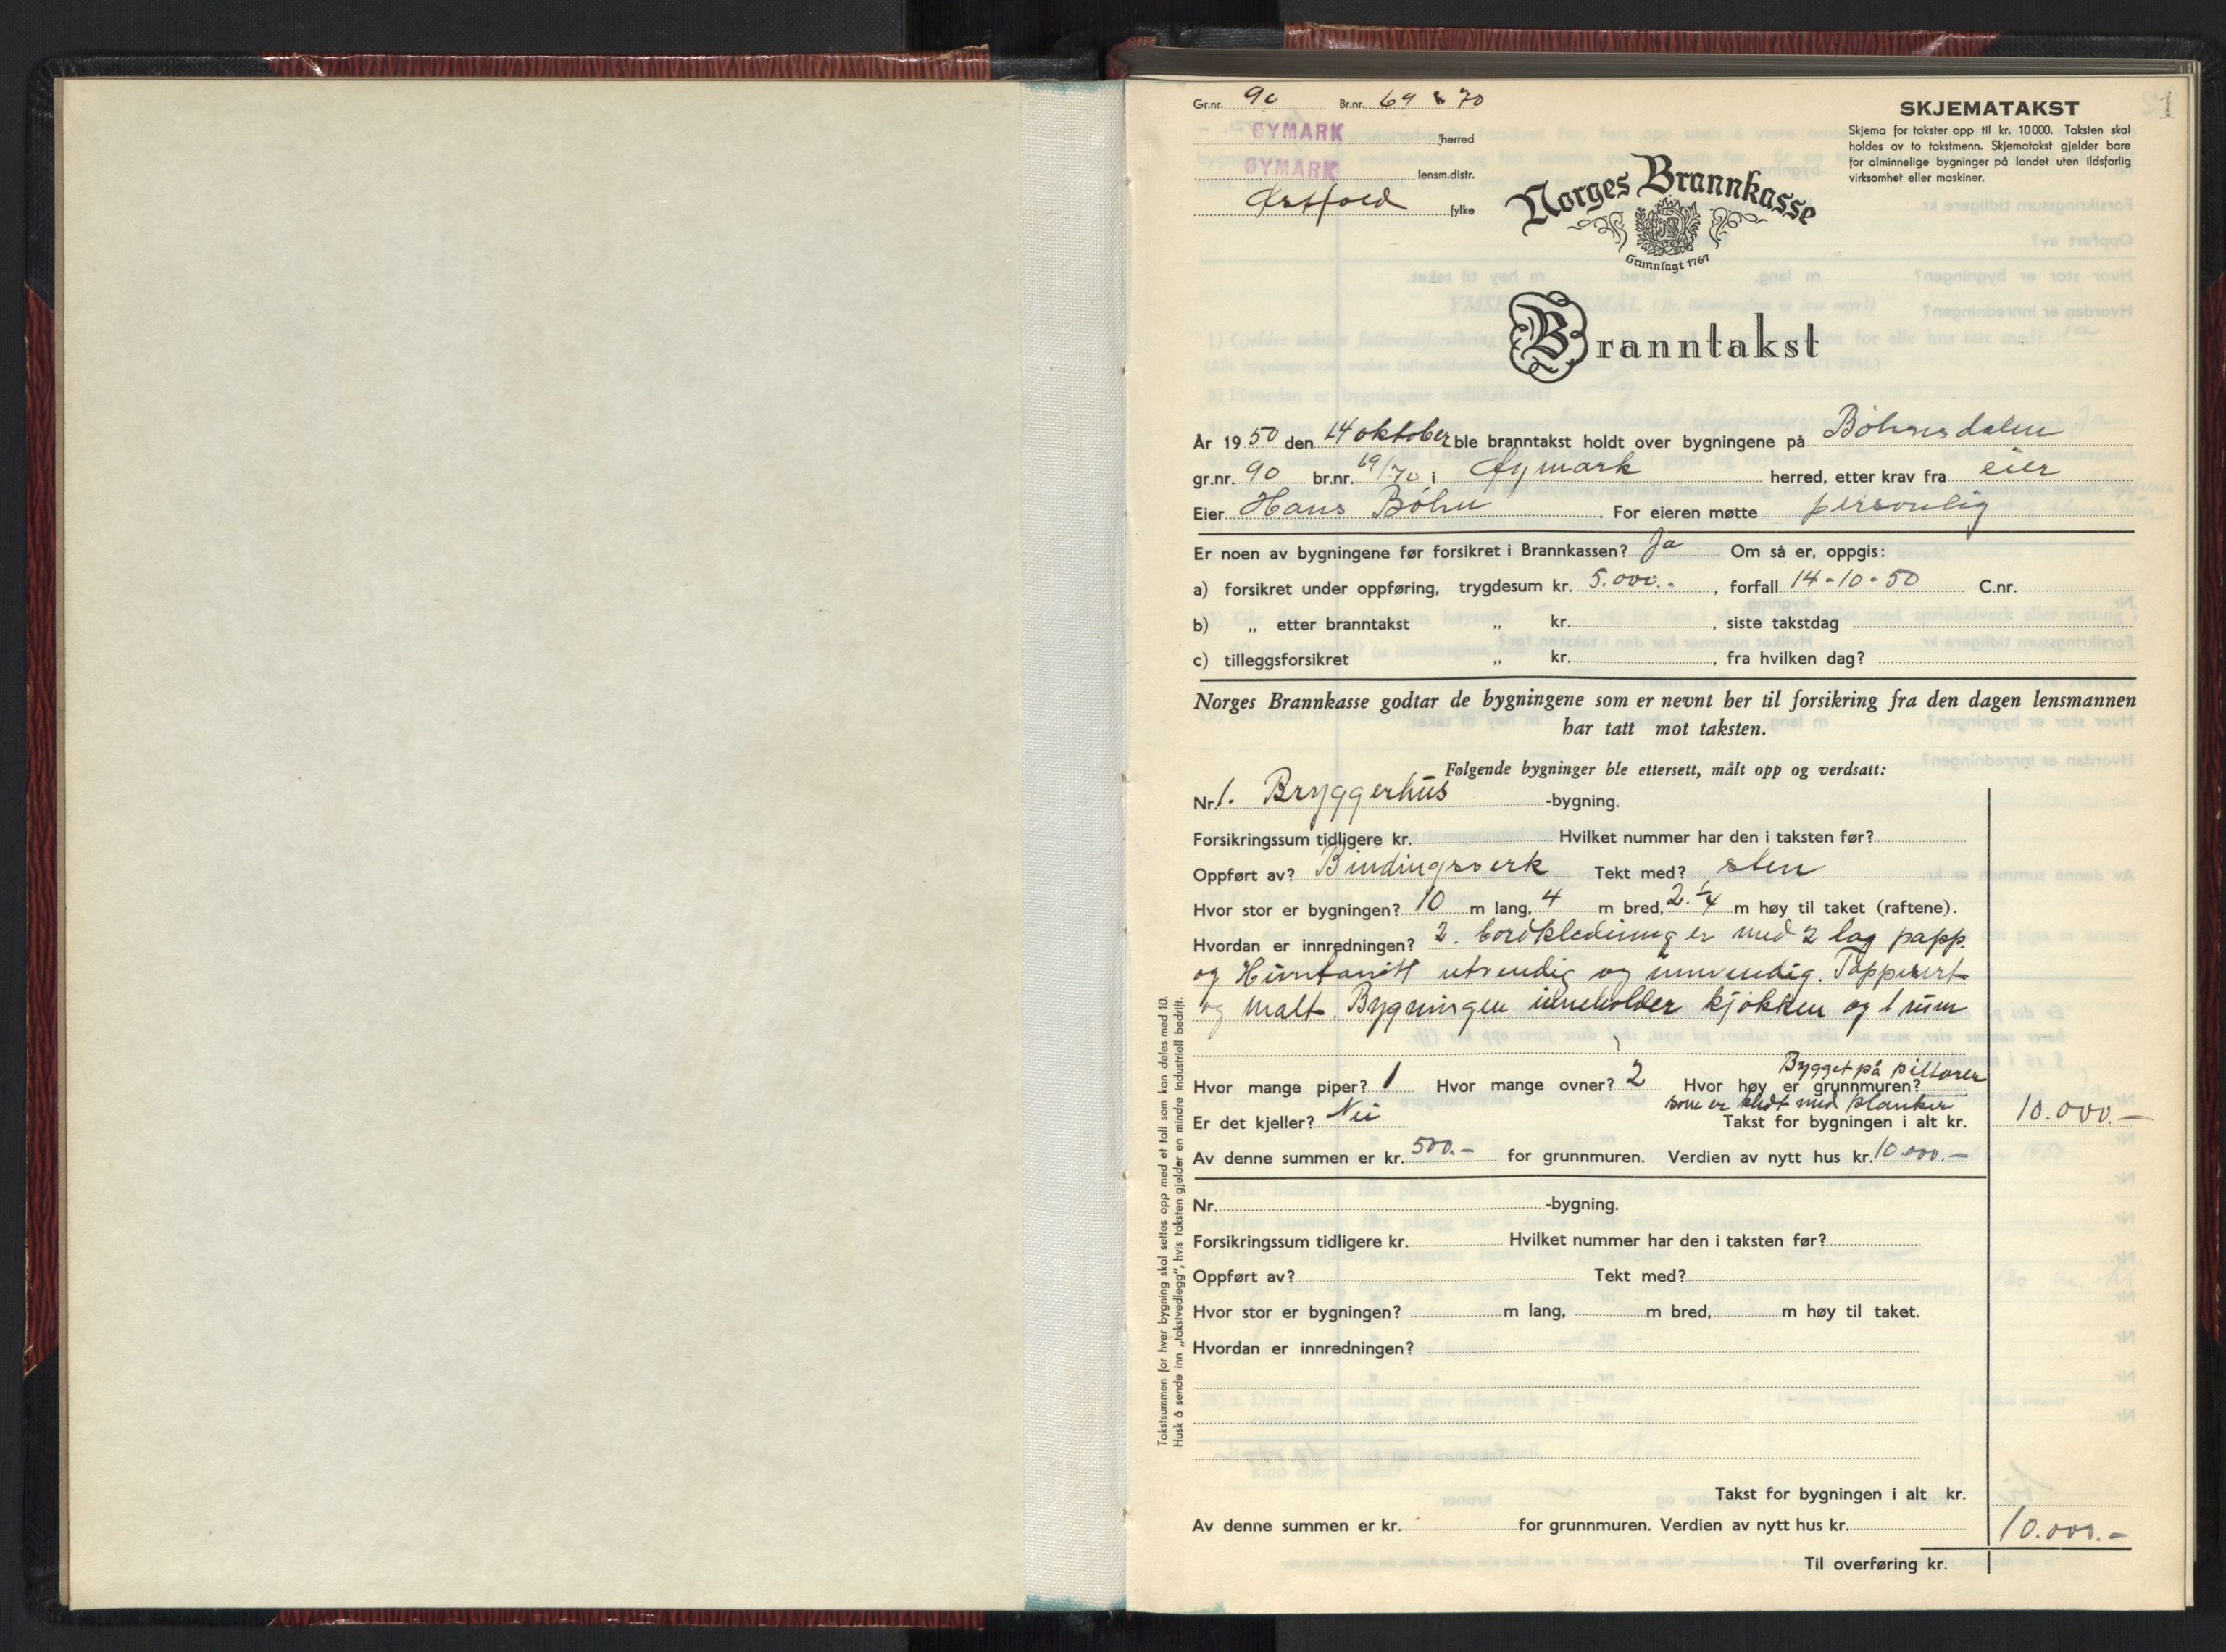 1
Gr.nr. 90 Br.nr. 69 & 70
ØYMARK herred
ØYMARK lensm.distr.
Østfold fylke
SKJEMATAKST
Skjema for takster opp til kr. 10000. Taksten skal
holdes av to takstmenn. Skjematakst gjelder bare
for alminnelige bygninger på landet uten ildsfarlig
virksomhet eller maskiner.
Norges Brannkasse
Grunnlagt 1767
Branntakst
År 1950 den 14 oktober ble branntakst holdt over bygningene på Bøhnsdalen
gr.nr. 90 br.nr. 69/70 i Øymark herred, etter krav fra eier
Eier Hans Bøhn. For eieren møtte personlig
Er noen av bygningene før forsikret i Brannkassen? Ja Om så er, oppgis:
a) forsikret under oppføring, trygdesum kr. 5.000.-, forfall 14-10-50 C.nr.
b) „ etter branntakst „ kr. , siste takstdag
c) tilleggsforsikret „ kr. , fra hvilken dag?
Norges Brannkasse godtar de bygningene som er nevnt her til forsikring fra den dagen lensmannen
har tatt mot taksten.
Følgende bygninger ble ettersett, målt opp og verdsatt:
Nr. 1. Bryggerhus -bygning.
Forsikringssum tidligere kr. Hvilket nummer har den i taksten før?
Oppført av? Bindingsverk Tekt med? sten
Hvor stor er bygningen? 10 m lang, 4 m bred, 2.1/4 m høy til taket (raftene).
Hvordan er innredningen? 2. bordkledning er med 2 lag papp.
og utvendig og innvendig. Tappesert
og malt. Bygningen inneholder kjøkken og 1 rum
Hvor mange piper? 1 Hvor mange ovner? 2 Hvor høy er grunnmuren? Bygget på pillarer
som er kledt med planker
Er det kjeller? Nei Takst for bygningen i alt kr. 10.000.-
Av denne summen er kr. 500.- for grunnmuren. Verdien av nytt hus kr. 10.000.-
Nr. -bygning.
Forsikringssum tidligere kr. Hvilket nummer har den i taksten før?
Oppført av? Tekt med?
Hvor stor er bygningen? m lang, m bred, m høy til taket.
Hvordan er innredningen?
Takst for bygningen i alt kr.
Av denne summen er kr. for grunnmuren. Verdien av nytt hus kr.
10.000.-
Til overføring kr.
Takstsummen for hver bygning skal settes opp med et tall som kan deles med 10.
Husk å sende inn „takstvedlegg", hvis taksten gjelder en mindre industriell bedrift.